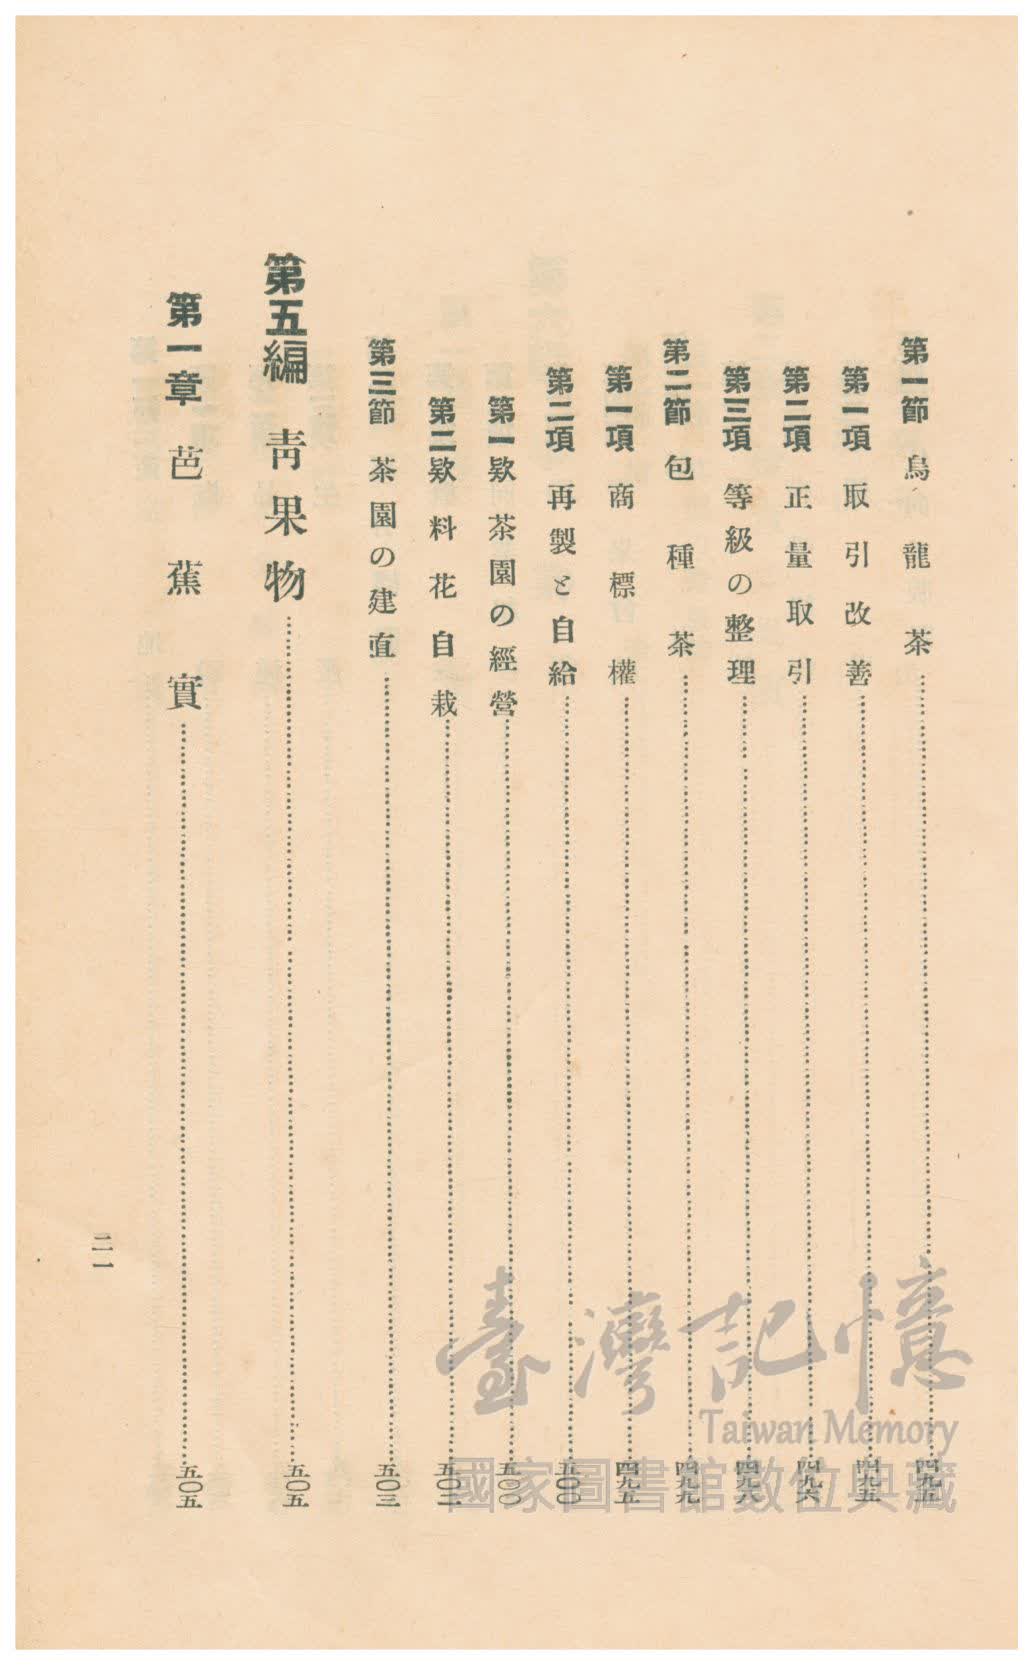 第一節 烏龍茶 四九五
第一項 取引改善 四九五
第二項 正量取引 四九六
第三項 等級の整理 四九八
第二節 包種茶 四九九
第一項 商標權 四九五
第二項 再製と自給 五〇〇
第一欵 茶園の經營 五〇〇
第二欵 料花自栽 五〇二
第三節 茶園の建直 五〇三
第五編 青果物 五〇五
第一章 芭蕉實 五〇五
二一
臺灣記憶
Taiwan Memory
國家圖書館數位典藏